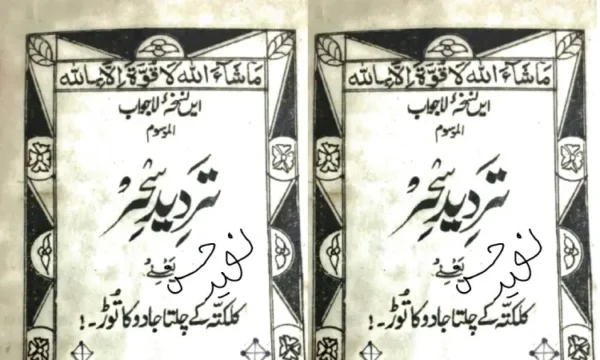 ماشاء اللہ لا قوۃ الا باللہ
ایں نسخۂ لاجواب
الموسوم
تردید سحر
یعنے
کلکتہ کے چلتا جادو کا توڑ۔!
ماشاء اللہ لا قوۃ الا باللہ
ایں نسخۂ لاجواب
الموسوم
تردید سحر
یعنے
کلکتہ کے چلتا جادو کا توڑ۔!